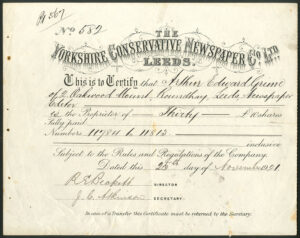 No 582
THE
YORKSHIRE CONSERVATIVE NEWSPAPER Co. LTD.
LEEDS.
This is to Certify that Arthur Edward Grime
of 2 Oakwood Mount, Roundhay, Leeds, Newspaper
Editor
is the Proprietor of Thirty £1 shares
fully paid
Numbers 11784 to 11813
inclusive
Subject to the Rules and Regulations of the Company.
Dated this 25th day of November 1921
DIRECTOR
J. C. Atkinson SECRETARY.
In case of a Transfer this Certificate must be returned to the Secretary.